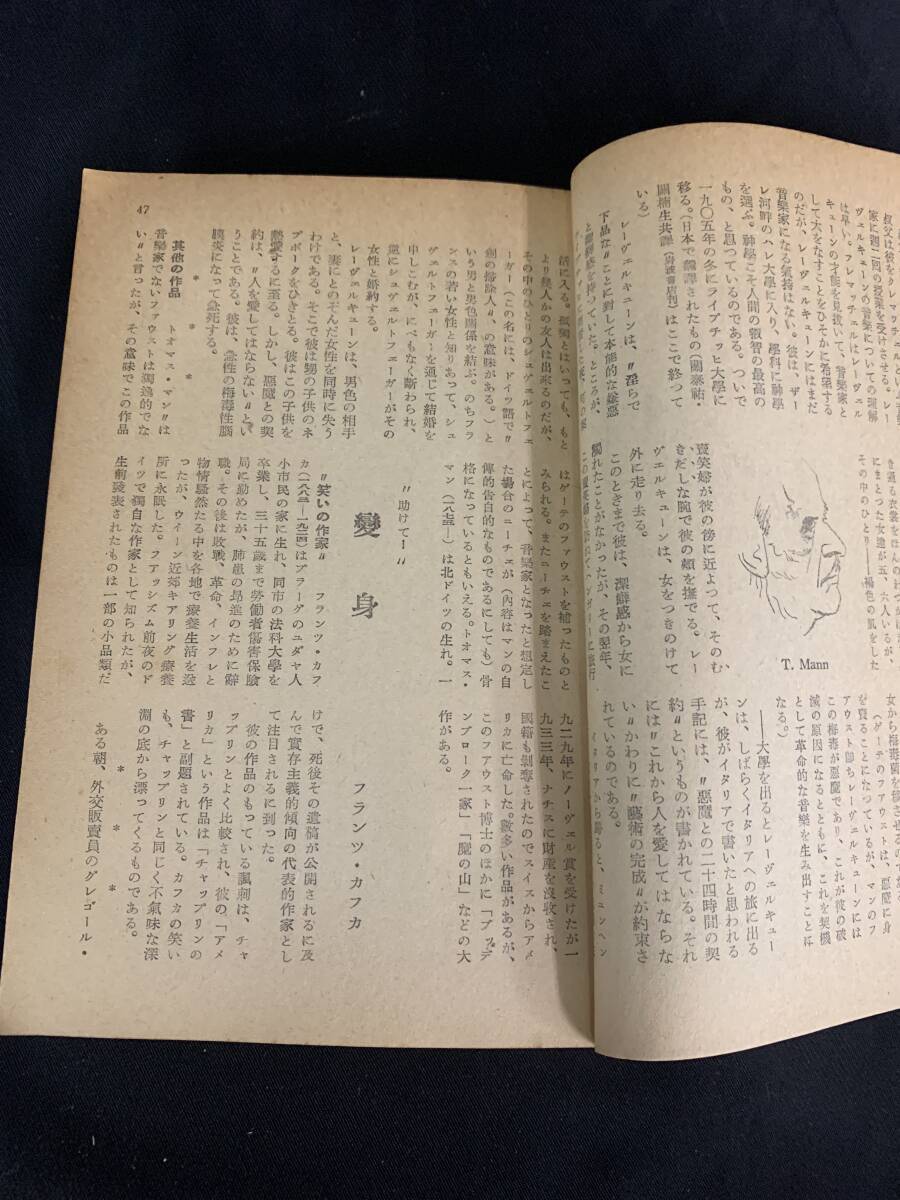 叔父は彼をクレッチュマルという音樂
家に週二回の授業を受けさせる。レー
ヴェルキューンの音樂についての理解
は早い。クレッチュマルはレーヴェル
キューンの才能を見拔いて、音樂家と
して大をなすことをひそかに希望する
のだが、レーヴェルキューンにはまだ
音樂家になる氣持はない。彼は、ザー
レ河畔のハレ大學に入り、學科に神學
を選ぶ。神學こそ人間の叡智の最高の
もの、と思つているのである。ついで
一九〇五年の冬にライプチッヒ大學に
移る。(日本で飜譯されたもの(關泰祐・
關楠生共譯『岩波書店刊』はここで終つて
いる)
レーヴェルキューンは、〝淫らで
下品な〟ことに對して本能的な嫌惡
と
を持つていた。ところが、
き通る衣裳をほんの
にまとつた女達が五、六人いるが、
その中のひとり――褐色の肌をした
賣笑婦が彼の傍に近よつて、そのむ
きだしな腕で彼の頰を撫でる。レー
ヴェルキューンは、女をつきのけて
外に走り去る。
このときまで彼は、潔癖感から女に
觸れたことがなかつたが、その翌年、
T. Mann
女から梅毒
(ゲーテのファウストは、惡魔に身
を賣ることになつているが、マンのフ
アウスト即ちレーヴェルキューンに
この梅毒が惡魔であり、これが彼の破
滅の原因になるとともに、これを契機
として革命的な音樂を生み出すことに
なる。)
――大學を出るとレーヴェルキュー
ンは、しばらくイタリアへの旅に出る
が、彼がイタリアで書いたと思われる
手記には、〝惡魔との二十四時間の契
約〟というものが書かれている。それ
には〝これから人を愛してはならな
い〟かわりに〝藝術の完成〟が約束さ
れているのである。
イタリアから歸ると、ミュンヘン
活に入る。孤獨とはいつても、もと
より幾人かの友人は出來るのだが、
その中のひとりのシュヴェルトフェ
ーガー(この名には、ドイツ語で〝
劍の掃除人〟の意味がある。)と
いう男と男色關係を結ぶ。のちフラ
ンスの若い女性と知りあつて、シュ
ヴェルトフェーガーを通じて結婚を
申しこむが、にべもなく斷わられ、
逆にシュヴェルトフェーガーがその
女性と婚約する。
レーヴェルキューンは、男色の相手
と、妻にとのぞんだ女性を同時に失う
わけである。そこで彼は甥の子供のネ
ポモークをひきとる。彼はこの子供を
熱愛するに至る。しかし、惡魔との契
約は、〝人を愛してはならない〟とい
うことである。彼は、急性の梅毒性腦
膜炎になつて急死する。
* * *
其他の作品
トオマス・マン〝は
音樂家でないファウストは獨逸的でな
い〟と言つたが、その意味でこの作品
はゲーテのファウストを補つたものと
みられる。またニーチェを踏まえたこ
とによつて、音樂家となつたと想定し
た場合のニーチェが(內容はマンの自
傳的告白的なものであるにしても)骨
格になつているともいえる。トオマス・
マン(一八七五―)は北ドイツの生れ。一
九二九年にノーヴェル賞を受けたが一
九三三年、ナチスに財產を沒收され、
國籍も剝奪されたのでスイスからアメ
リカに亡命した。數多い作品があるが、
このファウスト博士のほかに「ブッデ
ンブローク一家」「魔の山」などの大
作がある。
〝助けて！〟
變身
フランツ・カフカ
〝笑いの作家〟 フランツ・カフ
カ(一八八三―一九二四)はプラーグのユダヤ人
小市民の家に生れ、同市の法科大學を
卒業し、三十五歲まで勞働者傷害保險
局に勤めたが、肺患の昻進のために辭
職。その後は敗戰、革命、インフレと
物情騷然たる中を各地で療養生活を送
つたが、ウイーン近郊キアリング療養
所に永眠した。ファッシズム前夜のド
イツで獨自な作家として知られたが、
生前發表されたものは一部の小品類だ
けで、死後その遺稿が公開されるに及
んで實存主義的傾向の代表的作家とし
て注目されるに到つた。
彼の作品のもつている諷刺は、チャ
ップリンとよく比較され、彼の「アメ
リカ」という作品は「チャップリンの
書」と副題されている。カフカの笑い
も、チャップリンと同じく不氣味な深
淵の底から漂つてくるものである。
* * *
ある朝、外交販賣員のグレゴール・
47